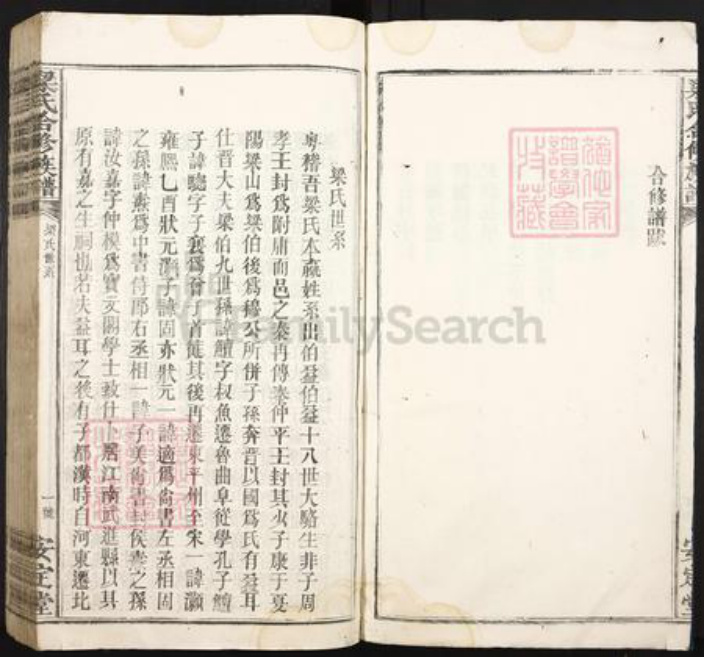 合修譜跋
梁氏世系
粤稽吾梁氏本嬴姓系出伯益伯益十八世大駱生非子周
孝王封爲附庸而邑之秦再傳秦仲平王封其少子康于夏
陽梁山爲梁伯後爲穆公所併子孫奔晋以國爲氏有益耳
仕晋大夫梁伯九世孫諱鱣字叔魚遷魯曲阜從學孔子鱣
子諱驄字子襄爲晉首徙其後再遷東平州至宋一諱灝
雍熙乙酉狀元灝子諱固亦狀元一諱適爲尚書左丞相固
之孫諱燾爲中書侍郎右丞相一諱子美尚書封侯燾之孫
諱汝嘉字仲模爲寶文閣學士致仕卜居江南武進縣以其
原有嘉之生祠也若夫益耳之後有子都漢時自河東遷北
梁氏合修族譜
梁氏世系
一號
安定堂
梁氏合修族譜
安定堂
FamilySearch